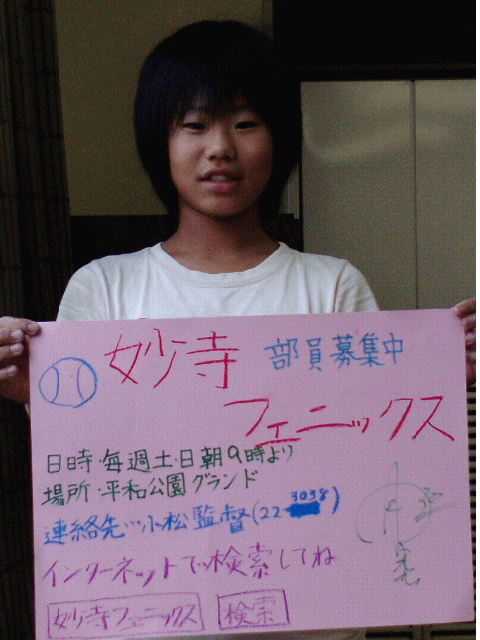 妙寺 部員募集中
フェニックス
日時・毎週土・日朝9時より
場所・平和公園グランド
連絡先…小松監督(22-3038)
インターネットで検索してね
妙寺フェニックス 検索